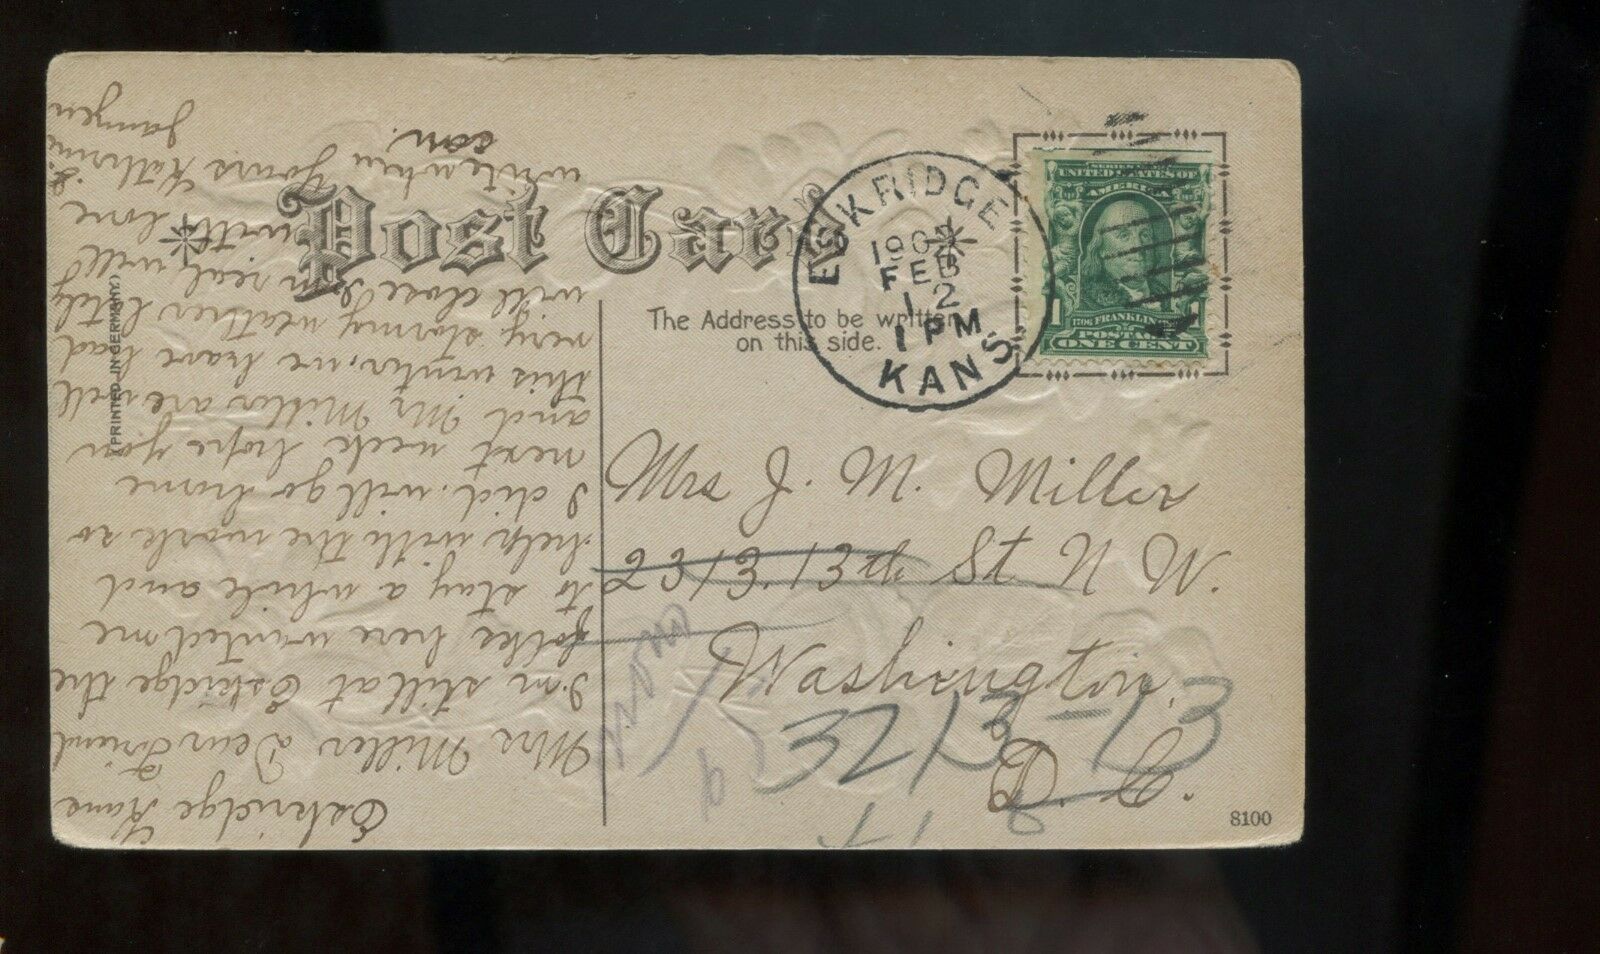 Post Card
The Address to be written
on this side.
(PRINTED IN GERMANY.)
ESKRIDGE
FEB
12
1 PM
KANS
SERIES
UNITED STATES OF
AMERICA
1706 FRANKLIN
POSTAGE
1 ONE CENT 1
Mrs J. M. Miller
2313.13th St N W.
Washington
D. C.
3213-13
8100
Eskridge Kans
Mrs Miller Dear Friend
I'm still at Eskridge the
folks here wanted me
to stay a while and
help with the work so
I did. will go home
next week hope you
and Mr Miller are well
this winter, we have had
very stormy weather lately
will close I'm real well
with love
write when
can.
Yours Katherine